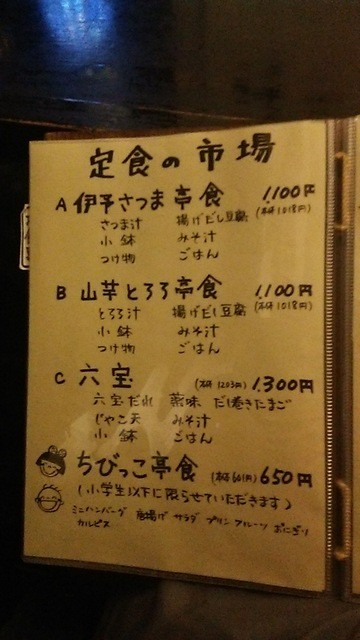 定食の市場
A 伊予さつま亭食 1,100円
さつま汁 揚げだし豆腐 (本体1018円)
小鉢 みそ汁
つけ物 ごはん
B 山芋とろろ亭食 1,100円
とろろ汁 揚げだし豆腐 (本体1018円)
小鉢 みそ汁
つけ物 ごはん
C 六宝 (本体1203円) 1,300円
六宝だれ 薬味 だし巻きたまご
じゃこ天 みそ汁
小鉢 ごはん
ちびっこ亭食 (本体601円) 650円
(小学生以下に限らせていただきます)
ミニハンバーグ 唐揚げ サラダ プリン フルーツ おにぎり
カルピス